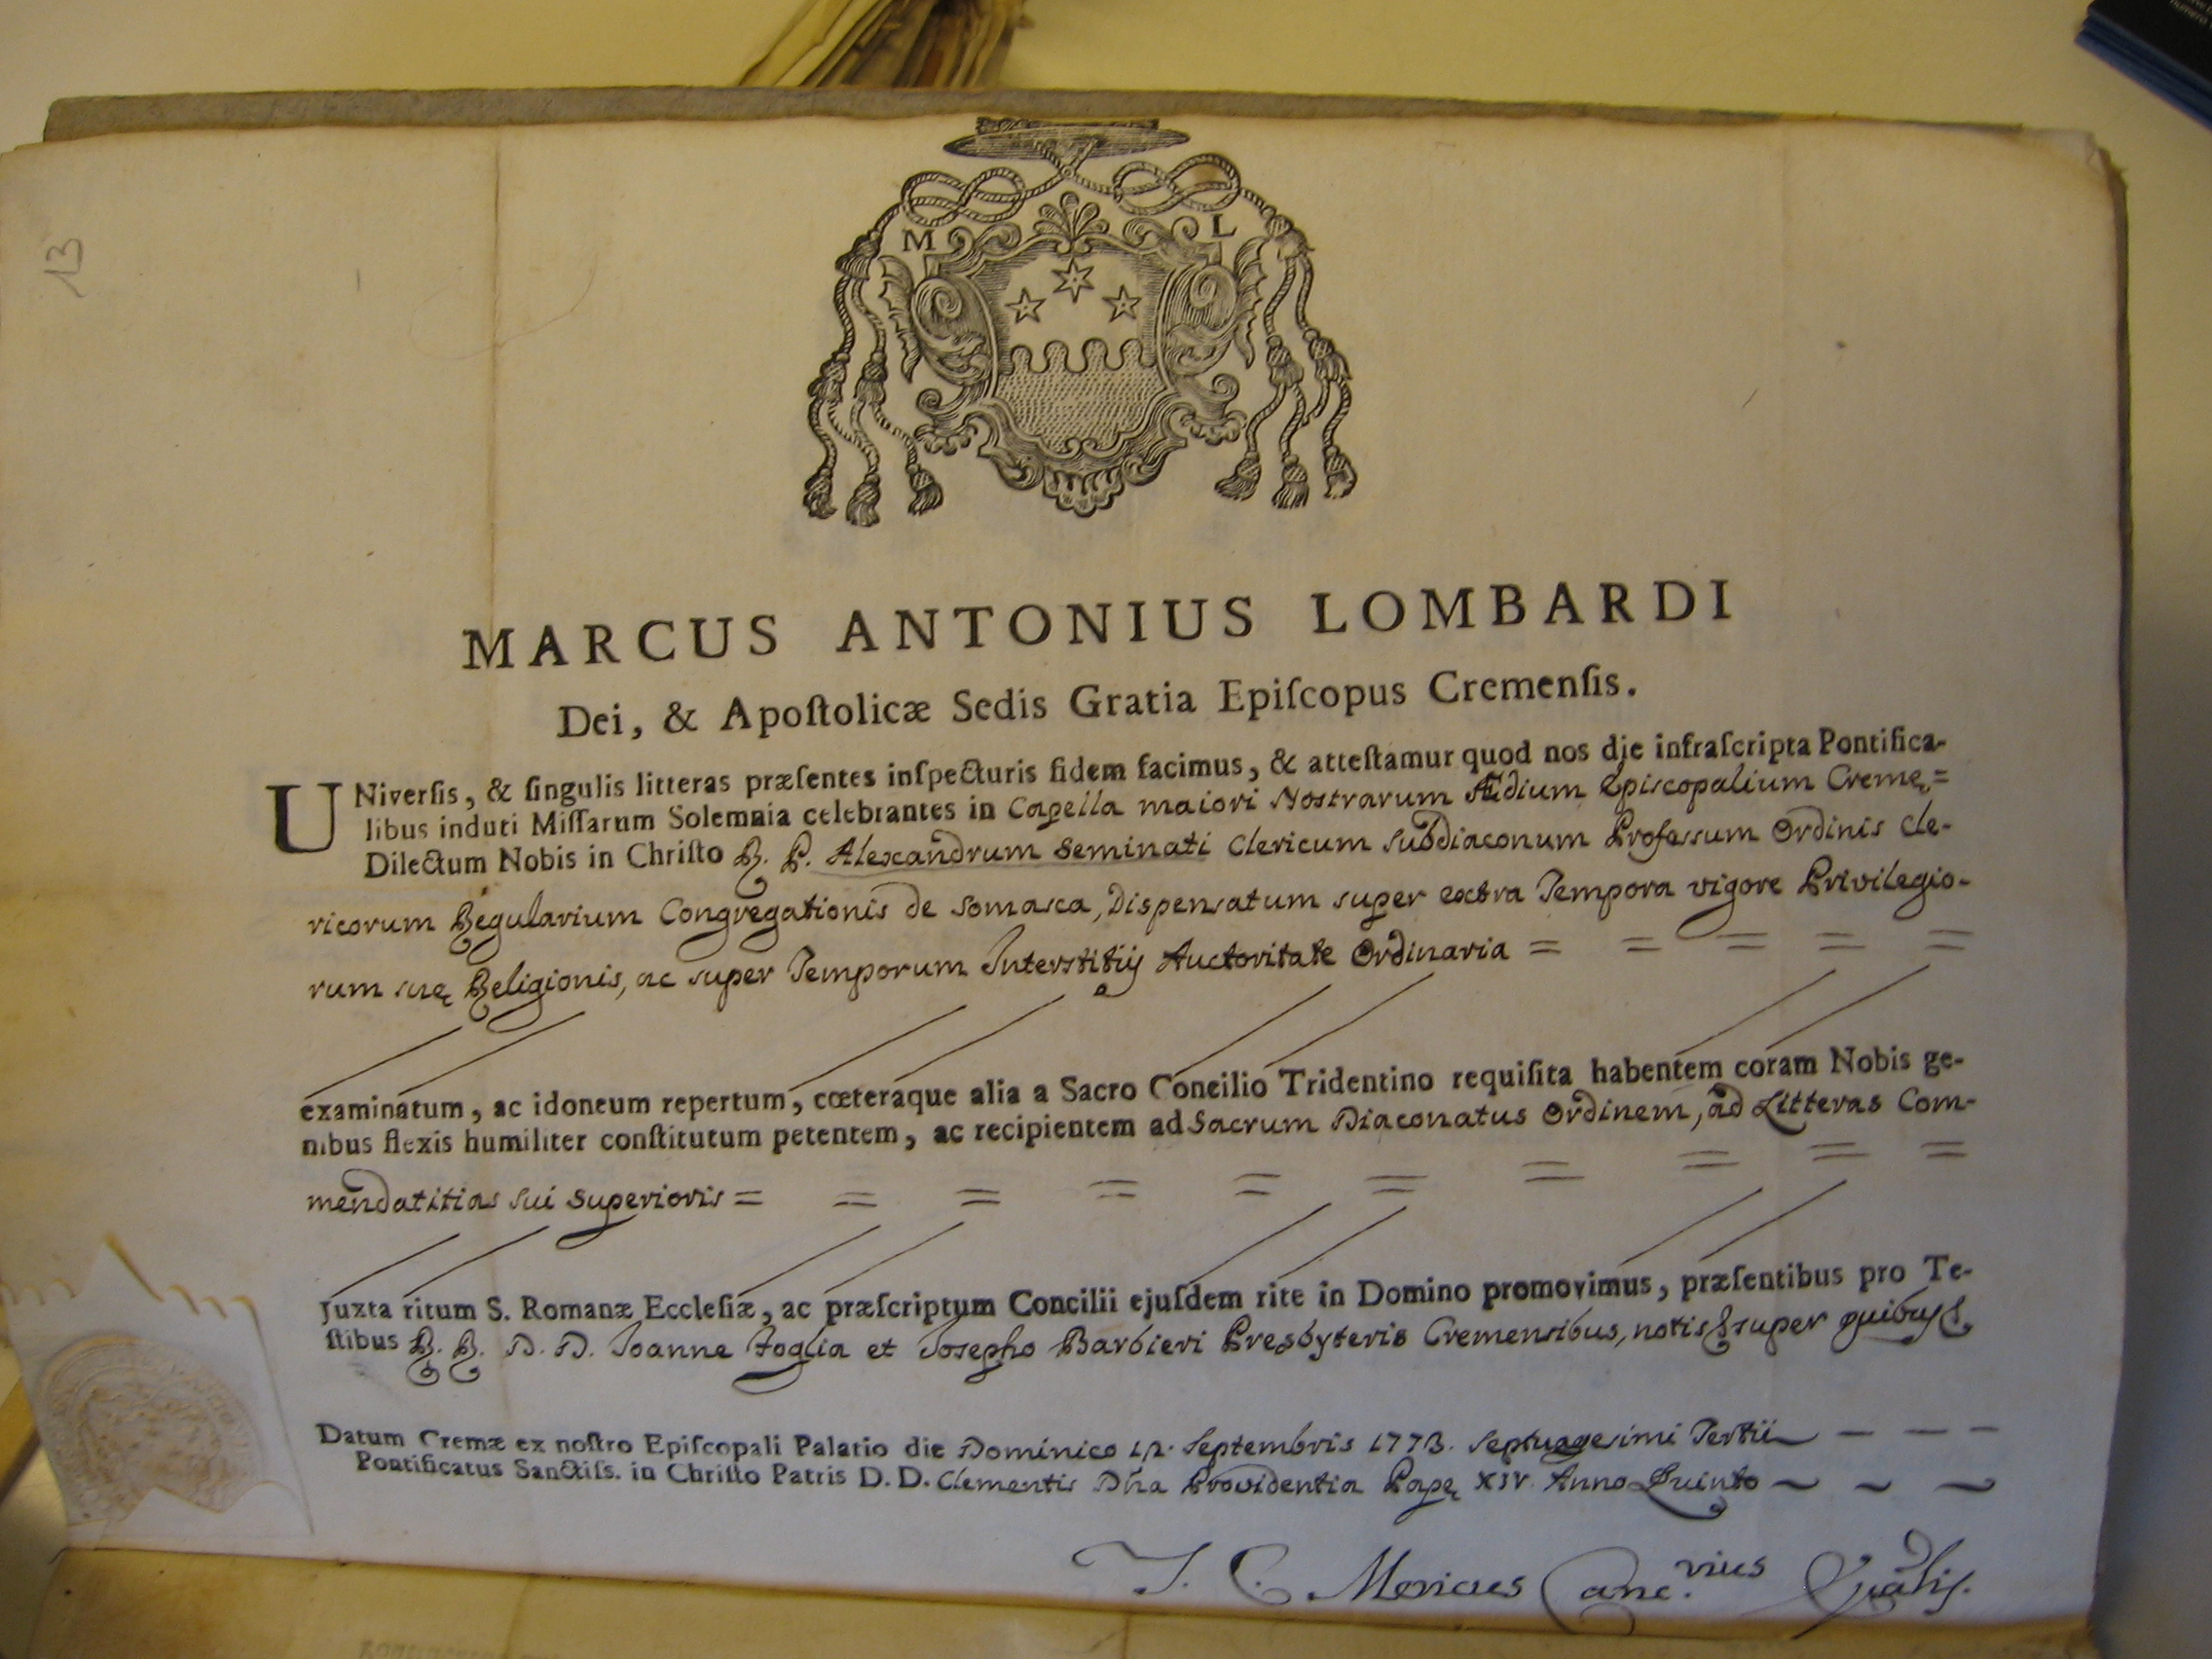 13
M L
MARCUS ANTONIUS LOMBARDI
Dei, & Apoſtolicæ Sedis Gratia Epiſcopus Cremenſis.
UNiverſis, & ſingulis litteras præſentes inſpecturis fidem facimus, & atteſtamur quod nos die infraſcripta Pontifica-
libus induti Miſſarum Solemnia celebrantes in Capella maiori Nostrarum Ædium Episcopalium Cremę =
Dilectum Nobis in Chriſto R. P. Alexandrum Seminati Clericum Subdiaconum Professum Ordinis Cle-
ricorum Regularium Congregationis de Somasca, Dispensatum super extra Tempora vigore Privilegio-
rum suę Religionis, ac super Temporum Interstitijs Auctoritate Ordinaria = = = = =
examinatum, ac idoneum repertum, cœteraque alia a Sacro Concilio Tridentino requiſita habentem coram Nobis ge-
nibus flexis humiliter conſtitutum petentem, ac recipientem ad Sacrum Diaconatus Ordinem, ad Litteras Com-
mendatitias sui Superioris = = = = = = = = =
Juxta ritum S. Romanæ Eccleſiæ, ac præſcriptum Concilii ejuſdem rite in Domino promovimus, præſentibus pro Te-
ſtibus R. R. D. D. Joanne Foglia et Josepho Barbieri Presbyteris Cremensibus, notis &. super quibus &.
Datum Cremæ ex noſtro Epiſcopali Palatio die Dominico 12. Septembris 1773. Septuagesimi Tertii - - -
Pontificatus Sanctiſs. in Chriſto Patris D. D. Clementis Dña Providentia Papę XIV. Anno Quinto ~ ~ ~
Canc.rius